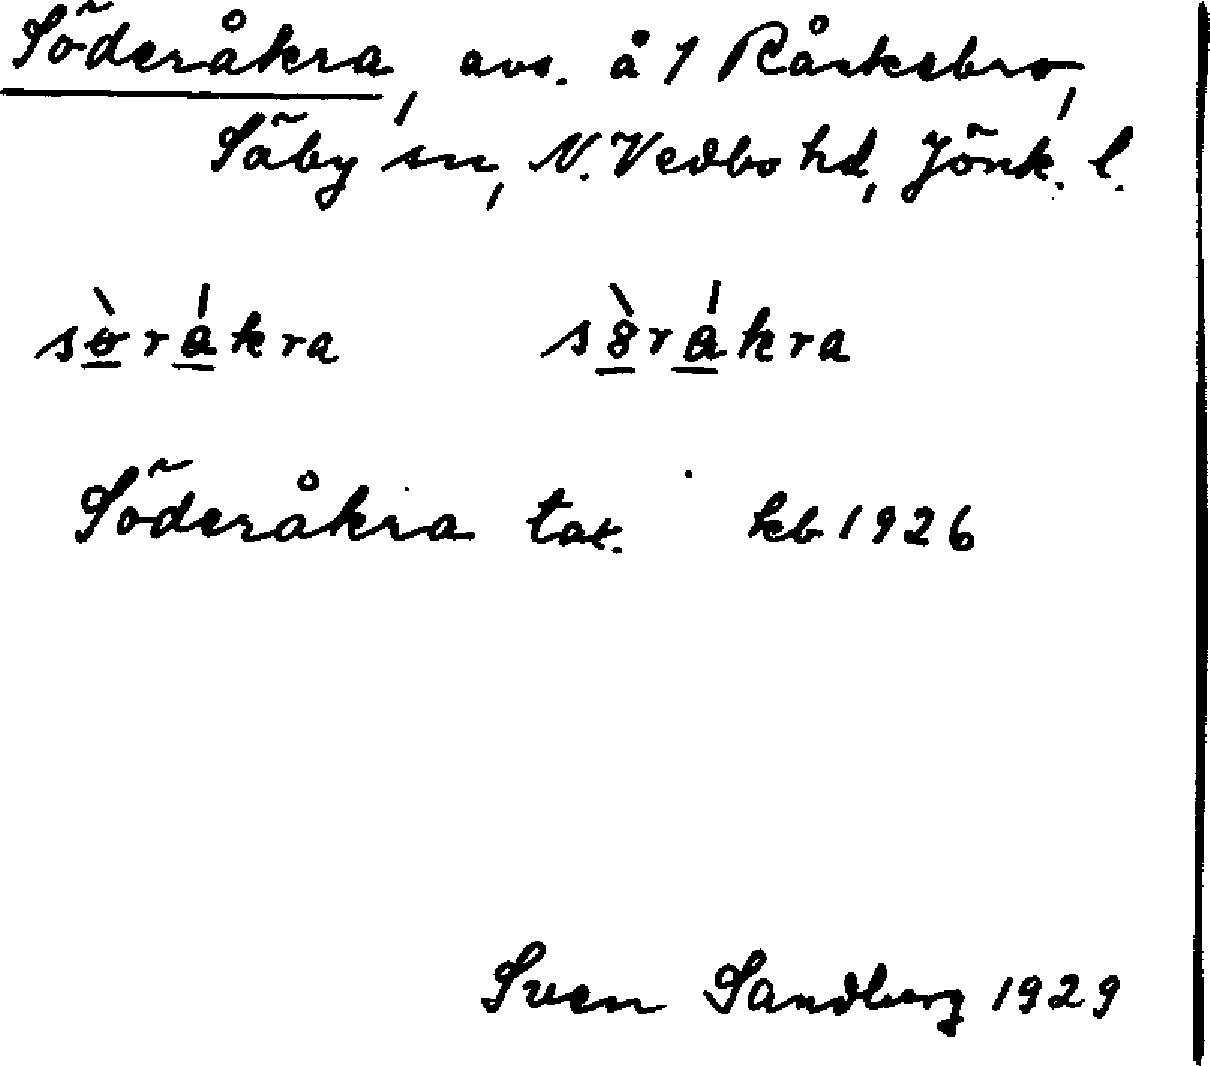 Söderåkra, avs. å 1 Råskebro,
Säby sn, N. Vedbo hd, Jönk. l.
sö̀rákra sö̀rákra
Söderåkra tax. kb 1926
Sven Sandberg 1929